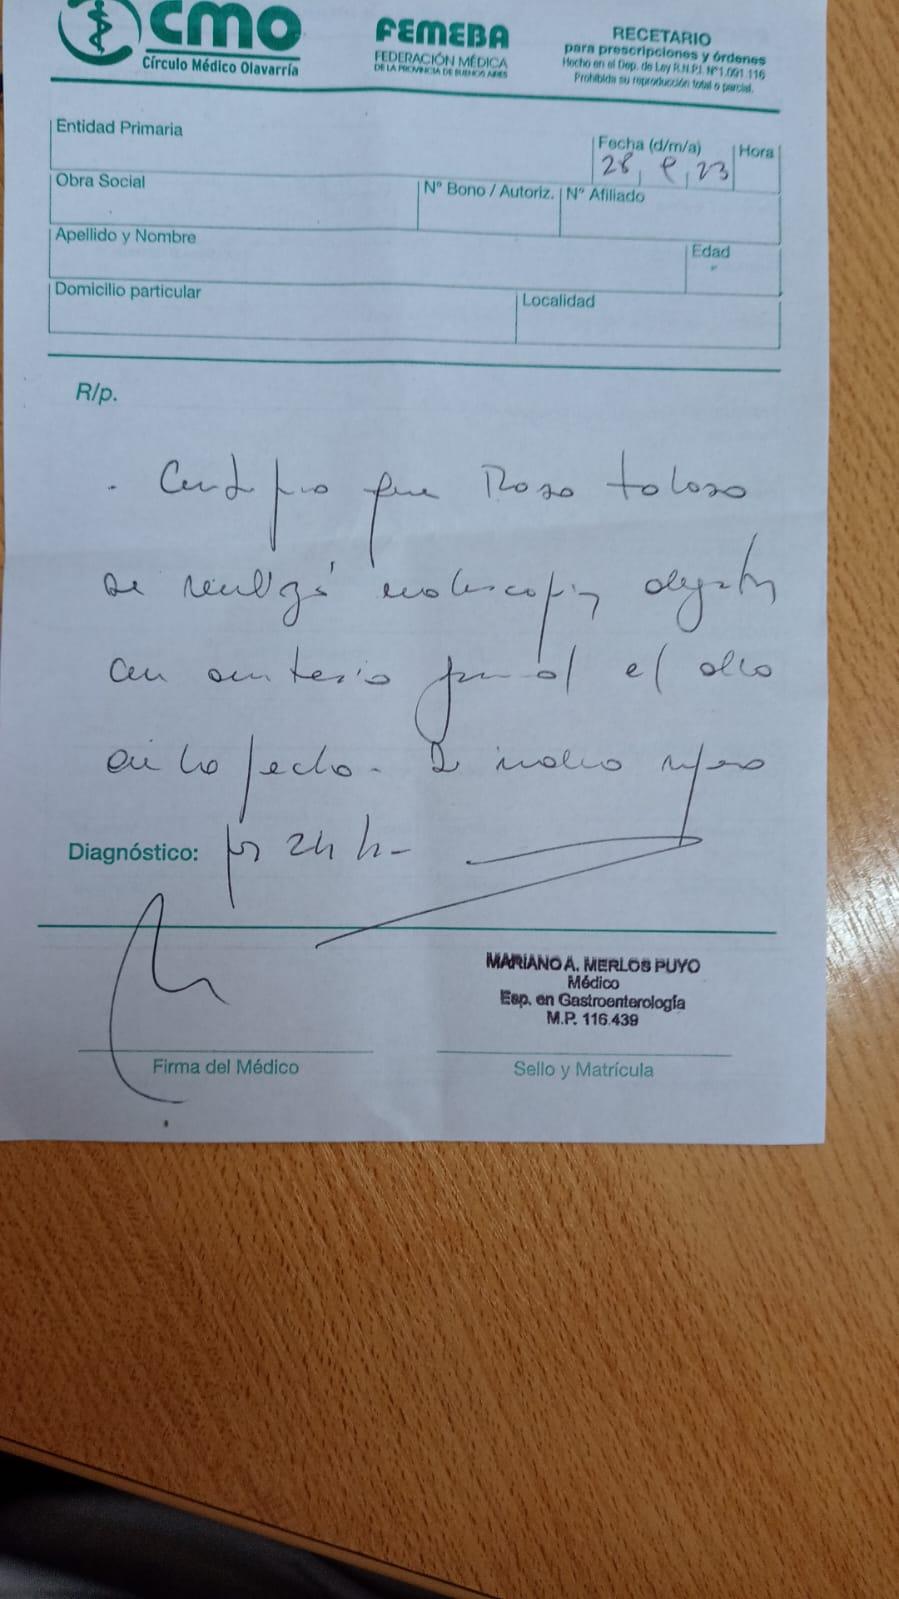 cmo
Círculo Médico Olavarría
FEMEBA
FEDERACIÓN MÉDICA
DE LA PROVINCIA DE BUENOS AIRES
RECETARIO
para prescripciones y órdenes
Hecho en el Dep. de Ley R.N.P.I. Nº 1.091.116
Prohibida su reproducción total o parcial.
Entidad Primaria
Fecha (d/m/a)
Hora
28, 23
Obra Social
Nº Bono / Autoriz.
Nº Afiliado
Apellido y Nombre
Edad
Domicilio particular
Localidad
R/p.
. Certifico que Rosa Tolosa
se realizó endoscopia
con anestesia el día
de la fecha - Se indica reposo
Diagnóstico: por 24 h -
MARIANO A. MERLOS PUYO
Médico
Esp. en Gastroenterología
M.P. 116.439
Firma del Médico
Sello y Matrícula